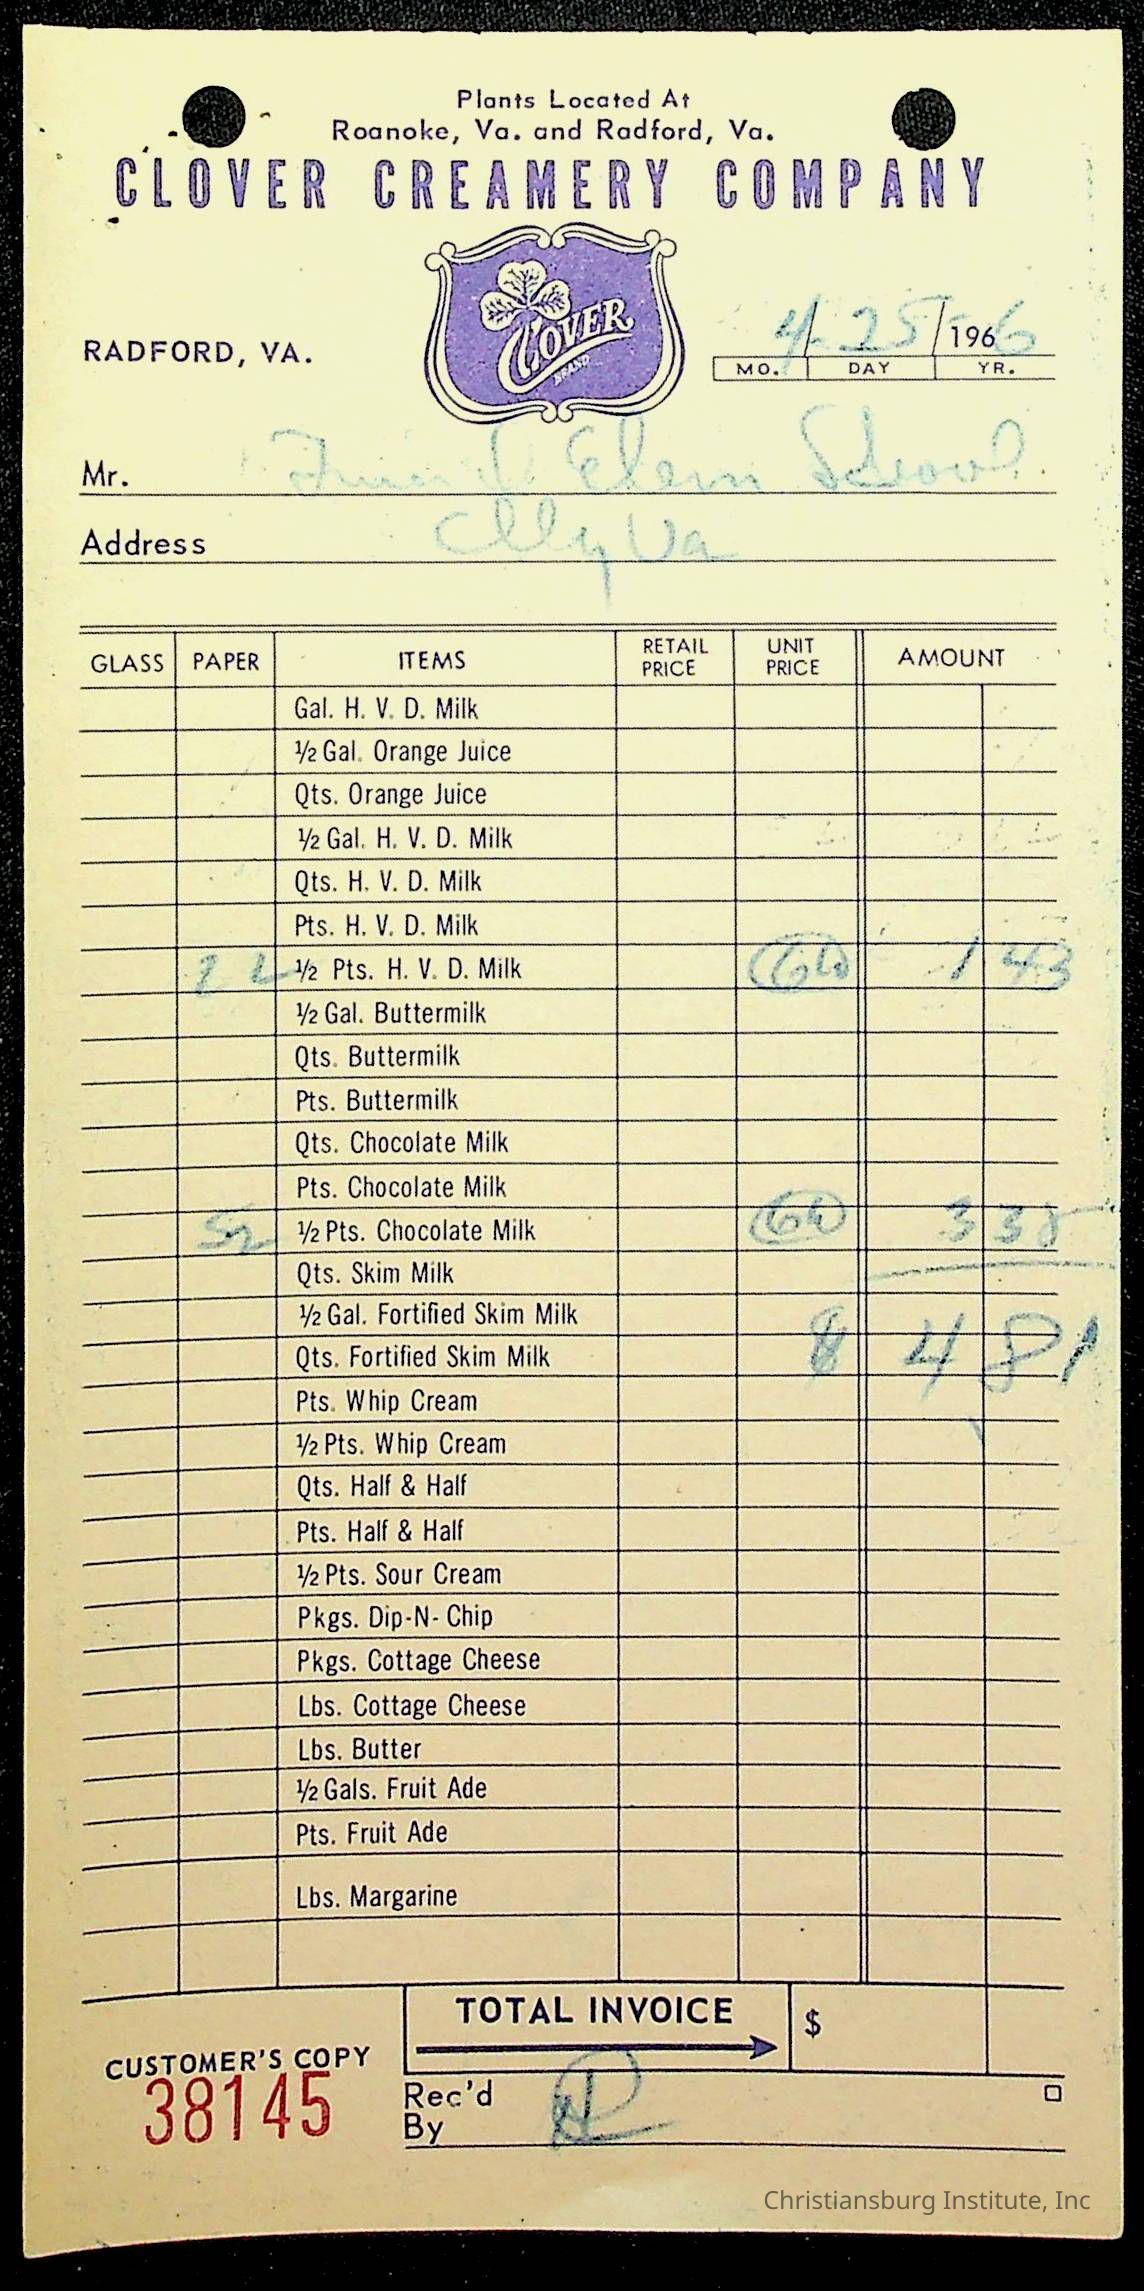 Plants Located At
Roanoke, Va. and Radford, Va.
CLOVER CREAMERY COMPANY
CLOVER
BRAND
RADFORD, VA.
4/25/1966
MO. DAY YR.
Mr. Elem School
Address Va
GLASS PAPER ITEMS RETAIL PRICE UNIT PRICE AMOUNT
Gal. H. V. D. Milk
½ Gal. Orange Juice
Qts. Orange Juice
½ Gal. H. V. D. Milk
Qts. H. V. D. Milk
Pts. H. V. D. Milk
22 ½ Pts. H. V. D. Milk 1 43
½ Gal. Buttermilk
Qts. Buttermilk
Pts. Buttermilk
Qts. Chocolate Milk
Pts. Chocolate Milk
52 ½ Pts. Chocolate Milk 3 38
Qts. Skim Milk
½ Gal. Fortified Skim Milk
Qts. Fortified Skim Milk $ 4 81
Pts. Whip Cream
½ Pts. Whip Cream
Qts. Half & Half
Pts. Half & Half
½ Pts. Sour Cream
Pkgs. Dip-N-Chip
Pkgs. Cottage Cheese
Lbs. Cottage Cheese
Lbs. Butter
½ Gals. Fruit Ade
Pts. Fruit Ade
Lbs. Margarine
TOTAL INVOICE $
CUSTOMER'S COPY
38145
Rec'd
By
Christiansburg Institute, Inc